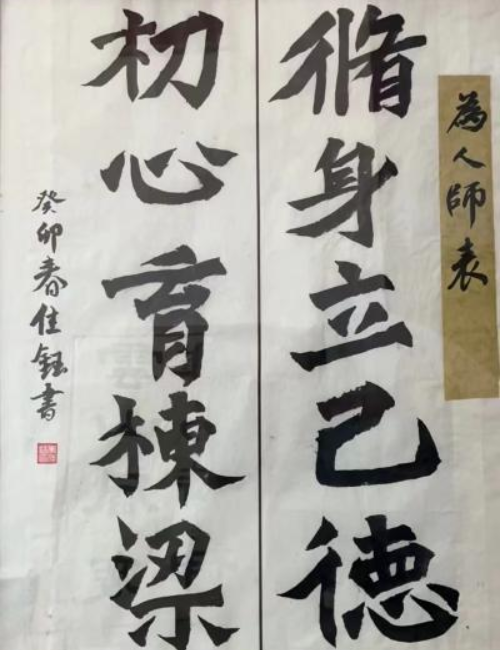 為人師表
脩身立己德
初心育棟梁
癸卯春佳鈺書